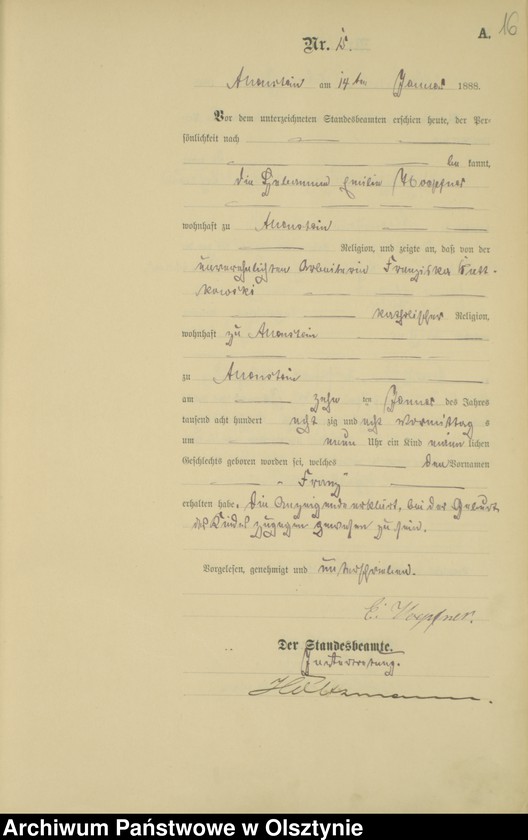 A. 16
Nr. 5.
Allenstein am 14 ten Januar 1888.
Vor dem unterzeichneten Standesbeamten erschien heute, der Per-
sönlichkeit nach
be kannt,
die Hebamme Emilie Hoepfner
wohnhaft zu Allenstein
Religion, und zeigte an, daß von der
unverehelichten Arbeiterin Franziska
kowski
katholischer Religion,
wohnhaft zu Allenstein
zu Allenstein
am zehn ten Januar des Jahres
tausend acht hundert acht zig und acht Vormittag s
um neun Uhr ein Kind männ lichen
Geschlechts geboren worden sei, welches den Vornamen
„Franz“
erhalten habe. Die Anzeigende erklärt, bei der Geburt
des Kindes zugegen gewesen zu sein.
Vorgelesen, genehmigt und unterschrieben.
E. Hoepfner.
Der Standesbeamte.
In Vertretung.
Holtzmann.
Archiwum Państwowe w Olsztynie